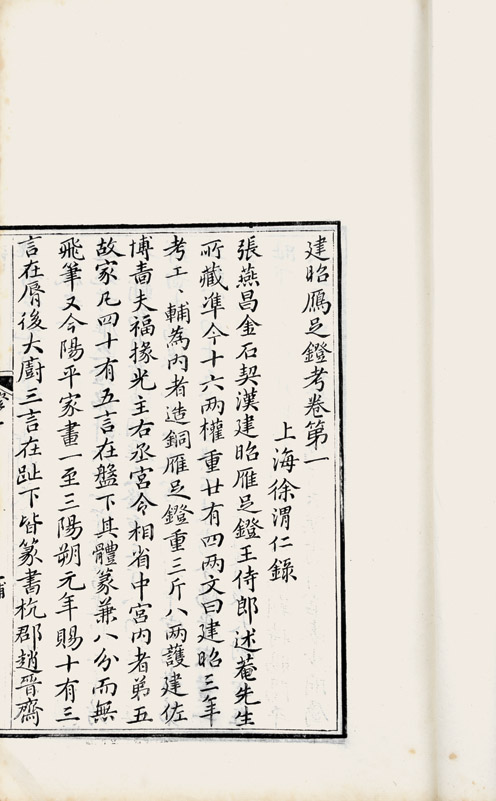 建昭鴈足鐙考卷第一
上海徐渭仁錄
張燕昌金石契漢建昭雁足鐙王侍郎述菴先生
所藏準今十六两權重廿有四两文曰建昭三年
考工輔為内者造銅雁足鐙重三斤八两護建佐
博嗇夫福掾光主右丞宮令相省中宮内者苐五
故家凡四十有五言在盤下其體篆兼八分而無
飛筆又今陽平家畫一至三陽朔元年賜十有三
言在脣後大廚三言在趾下皆篆書杭郡趙晋齋